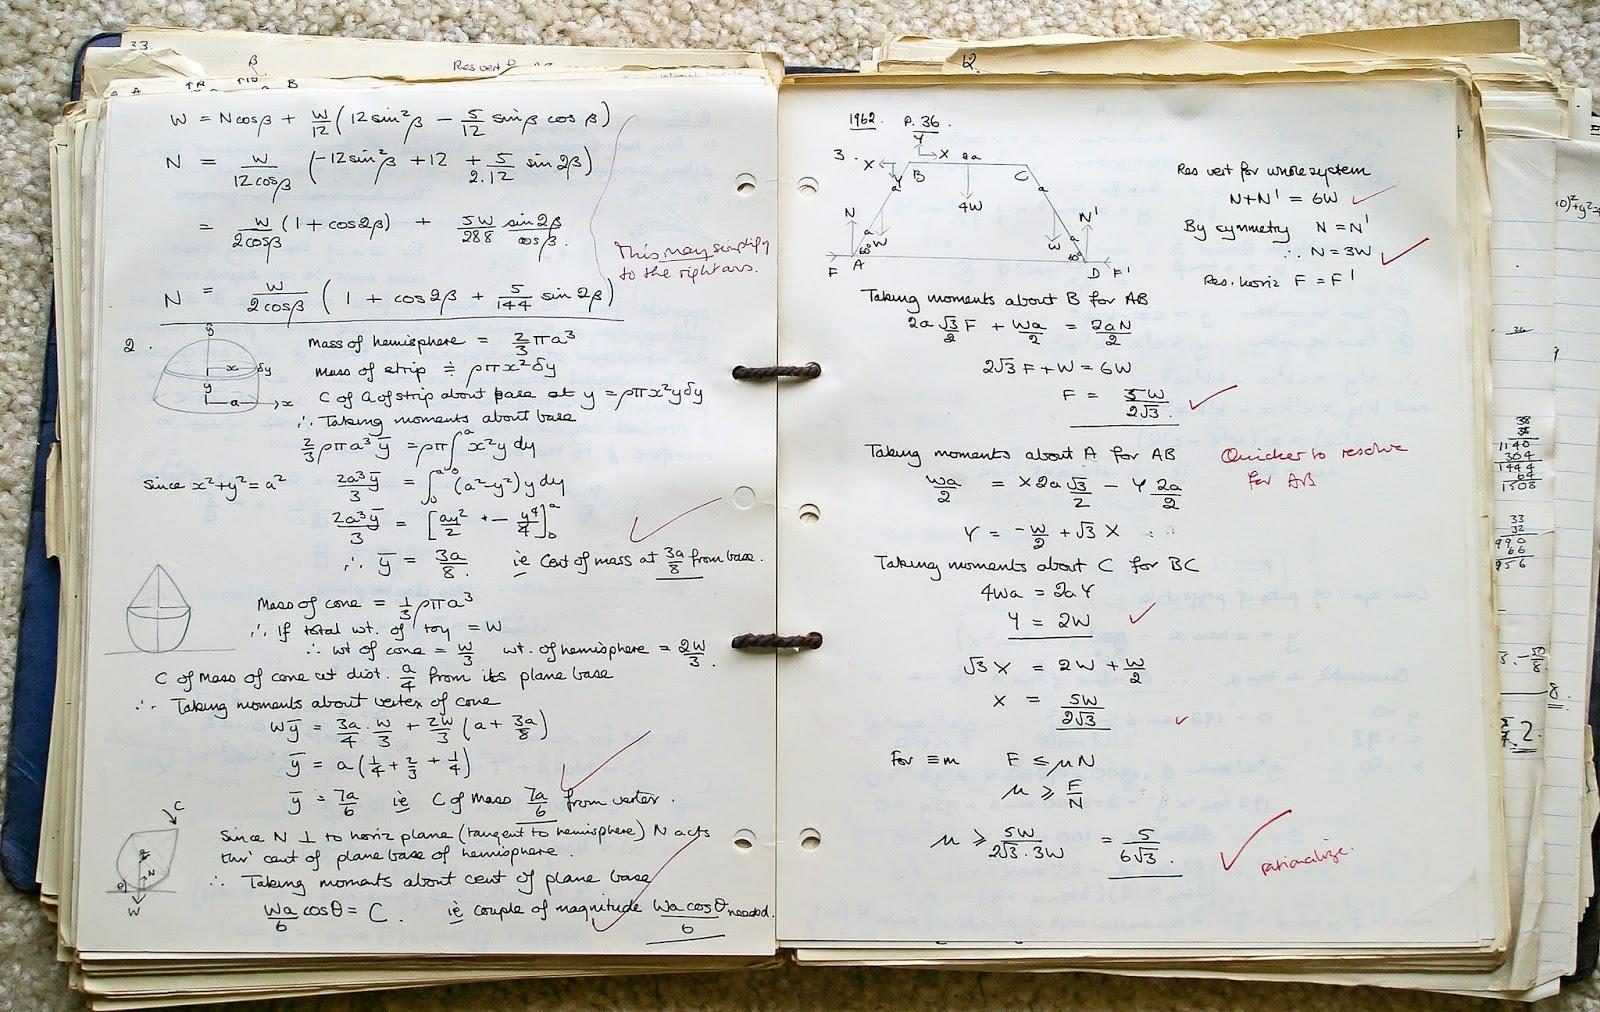 33.
β
Res vert
A
B
W = Ncosβ + W/12 (12 sin²β − 5/12 sinβ cos β)
N = W/12cosβ (−12sin²β + 12 + 5/2.12 sin 2β)
= W/2cosβ (1 + cos2β) + 5W/288 sin2β/cosβ.
This may simplify
to the right ans.
N = W/2cosβ (1 + cos2β + 5/144 sin 2β)
2.
x
δy
y
a
x
Mass of hemisphere = 2/3 πa³
Mass of strip ≑ ρπx²δy
C of G of strip about base at y = ρπx²yδy
∴ Taking moments about base
2/3 ρπa³ȳ = ρπ∫₀ᵃ x²y dy
Since x²+y² = a² 2a³ȳ/3 = ∫₀ᵃ (a²−y²) y dy
2a³ȳ/3 = [ay²/2 + − y⁴/4]₀ᵃ
∴ ȳ = 3a/8. ie Cent of mass at 3a/8 from base.
Mass of cone = 1/3 ρπa³
∴ If total wt. of toy = W
∴ wt of cone = W/3 wt. of hemisphere = 2W/3.
C of Mass of cone at dist. a/4 from its plane base
∴ Taking moments about vertex of cone
Wȳ = 3a/4 . W/3 + 2W/3 (a + 3a/8)
ȳ = a(1/4 + 2/3 + 1/4)
ȳ = 7a/6 ie C of Mass 7a/6 from vertex.
C
N
W
Since N ⊥ to horiz plane (tangent to hemisphere) N acts
thr' cent of plane base of hemisphere.
∴ Taking moments about cent of plane base
Wa/6 cosθ = C. ie couple of magnitude Wa cosθ/6 needed.
12
1962. P. 36.
3.
Y
X
X
2a
B
C
Y
a
a
4W
N
N'
a
W
W
a
60°
60°
F
A
D
F'
Res vert for whole system
N+N' = 6W
By symmetry N = N'
∴ N = 3W
Res. horiz F = F'
Taking moments about B for AB
2a √3/2 F + Wa/2 = 2aN/2
2√3 F + W = 6W
F = 5W/2√3.
Taking moments about A for AB
Quicker to resolve
for AB
Wa/2 = X 2a √3/2 − Y 2a/2
Y = −W/2 + √3 X
Taking moments about C for BC
4Wa = 2aY
Y = 2W
√3 X = 2W + W/2
X = 5W/2√3
For ≡m F ≤ μN
μ ≥ F/N
μ ≥ 5W/2√3.3W = 5/6√3.
rationalize.
38
38
1140
304
1444
64
1508
33
32
990
66
956
8.
2.